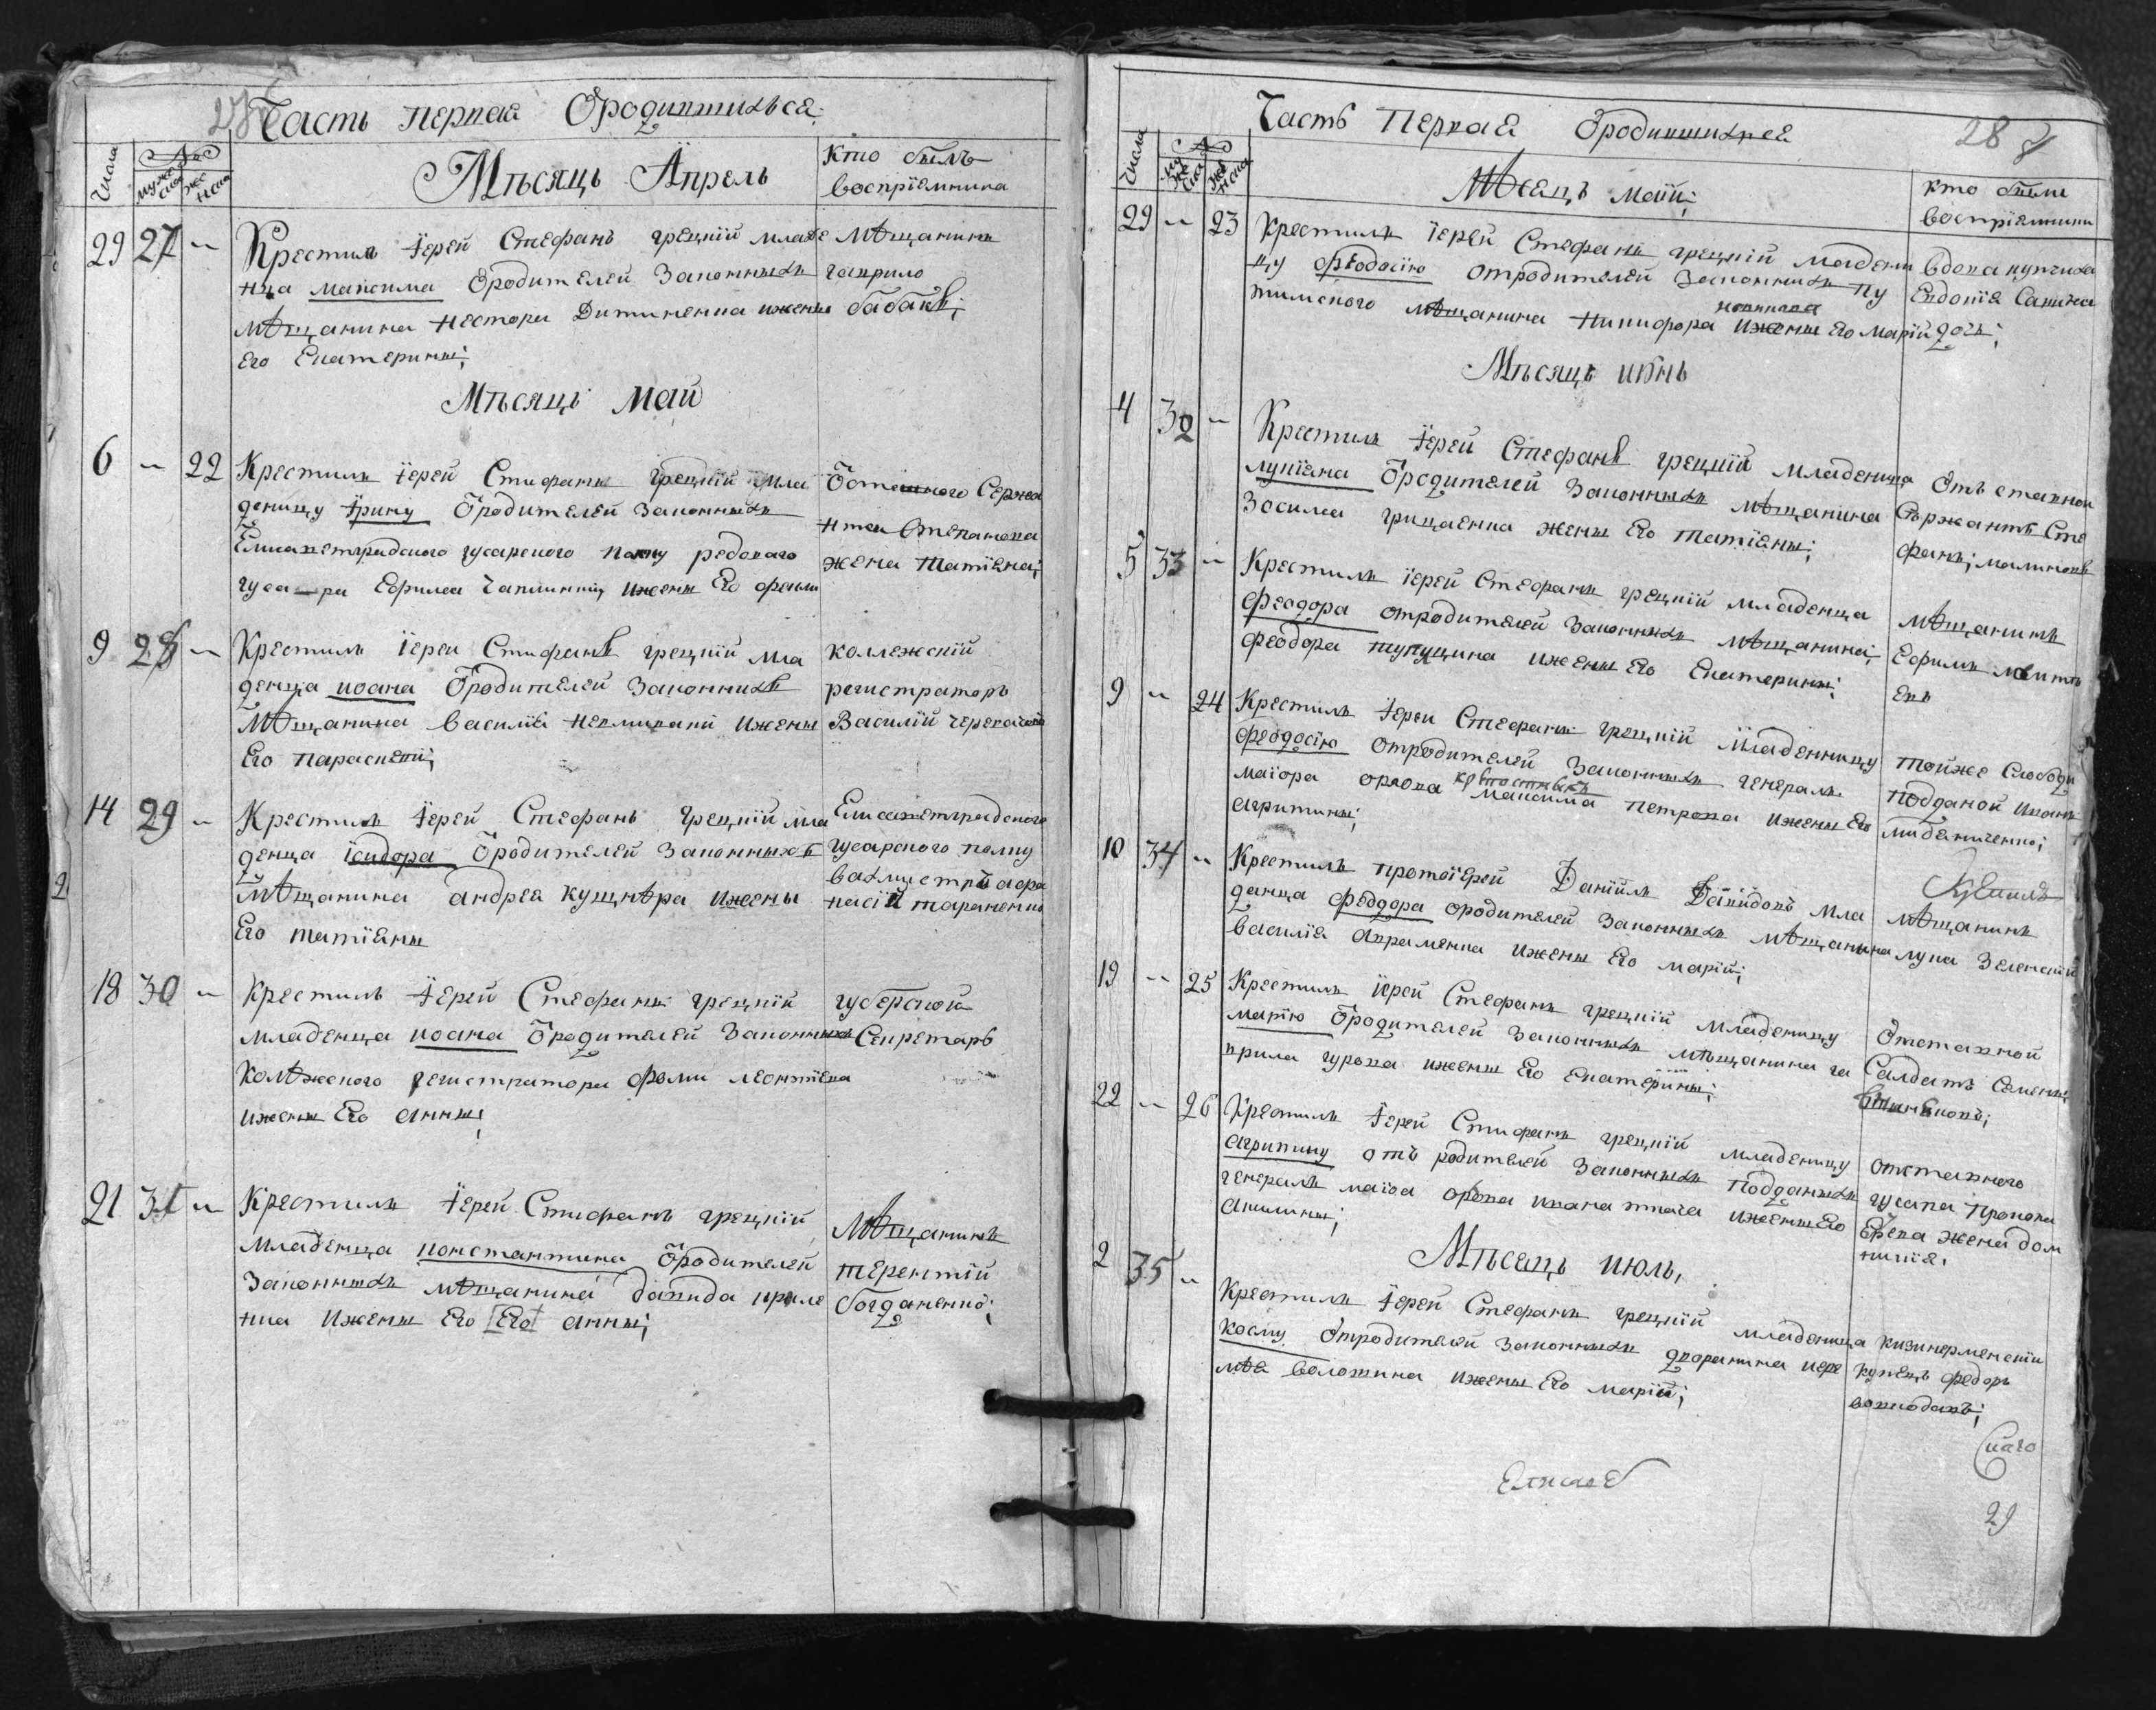 Часть первая О родившихъся
Числа мужеска женска
Мѣсяцъ Апрель
кто былъ
воспріемника
29 27 ̴ Крестилъ іерей Стефанъ грецкій младе
нца максима ѿ родителей законныхъ
мѣщанина нестора Дитиненка и жены
Его Екатерины;
Мѣщанинъ
гаврило
бабакъ;
Мѣсяцъ Май
6 ̴ 22 Крестилъ іерей Стефанъ грецкій мла
деницу ірину ѿ родителей законныхъ
Елисаветградского гусарского полку редоваго
гусара Ефрима и жены Его
Сержа
нта Степанова
жена татіана;
9 28 ̴ Крестилъ іереи Стефанъ грецкій мла
денца иоана ѿ родителей законныхъ
Мѣщанина василія и жены
Его параскевіи;
коллежскій
регистраторъ
Василій
14 29 ̴ Крестилъ іерей Стефанъ грецкій мла
денца ісидора ѿ родителей законныхъ
Мѣщанина андрея кушнѣра и жены
Его татіаны
Елисаветградского
гусарского полку
вахмистръ афа
насій тараненко
18 30 ̴ Крестилъ іерей Стефанъ грецкій
младенца иоана ѿ родителей законныхъ
Колѣжского регистратора фомы леонтіева
и жены Его анны;
губерской
Секретарь
21 31 ̴ Крестилъ іерей Стефанъ грецкій
младенца константина ѿ родителей
законныхъ мѣщанина давида криле
нка и жены Его Его анны;
Мѣщанинъ
терентій
богданенко;
Часть Первая О родившихся
28
Числа
Мѣсяцъ маій;
кто были
воспріемники
29 ̴ 23 Крестилъ іерей Стефанъ грецкій младени
цу феодосію от родителей законныхъ пу
тимского мѣщанина никифора новикова и жены Его маріи
вдова купчиха
Евдокія Савина
дочь;
Мѣсяцъ июнь
4 32 ̴ Крестилъ іерей Стефанъ грецкій младенца
лукіана ѿ родителей законныхъ мѣщанина
Василея грицаенка жены Его татіаны;
Отъставной
Сержантъ Сте
фанъ; малиновъ
5 33 ̴ Крестилъ іерей Стефанъ грецкій младенца
феодора от родителей законныхъ мѣщанина
феодора тупицина и жены Его Екатерины;
мѣщанинъ
Ефимъ
9 ̴ 24 Крестилъ іереи Стефанъ грецкій младенницу
феодосію от родителей законныхъ генералъ
маіора орлова максима петрова и жены Его
агрипины;
тойже Слободи
подданой иванъ
10 34 ̴ Крестилъ протоіерей Даніилъ Давидовъ мла
денца феодора ѿ родителей законныхъ мѣщанина
василія авраменка и жены Его маріи;
мѣщанинъ
лука зеленскій
19 ̴ 25 Крестилъ іерей Стефанъ грецкій младеницу
марію ѿ родителей законныхъ мѣщанина га
врила гурова и жены Его Екатерины;
Отставной
Салдатъ Семенъ;
22 ̴ 26 Крестилъ іерей Стефанъ грецкій младеницу
агрипину отъ родителей законныхъ подданыхъ
генералъ маіоа орлова ивана ткача и жены Его
акилины;
отставного
гусара прокопа
жена дом
никія.
Мѣсецъ июль,
2 35 ̴ Крестилъ іерей Стефанъ грецкій младенца
косму от родителей законныхъ дворанина иере
мѣя волошина и жены Его маріи;
кизикерменскіи
купецъ федоръ
29